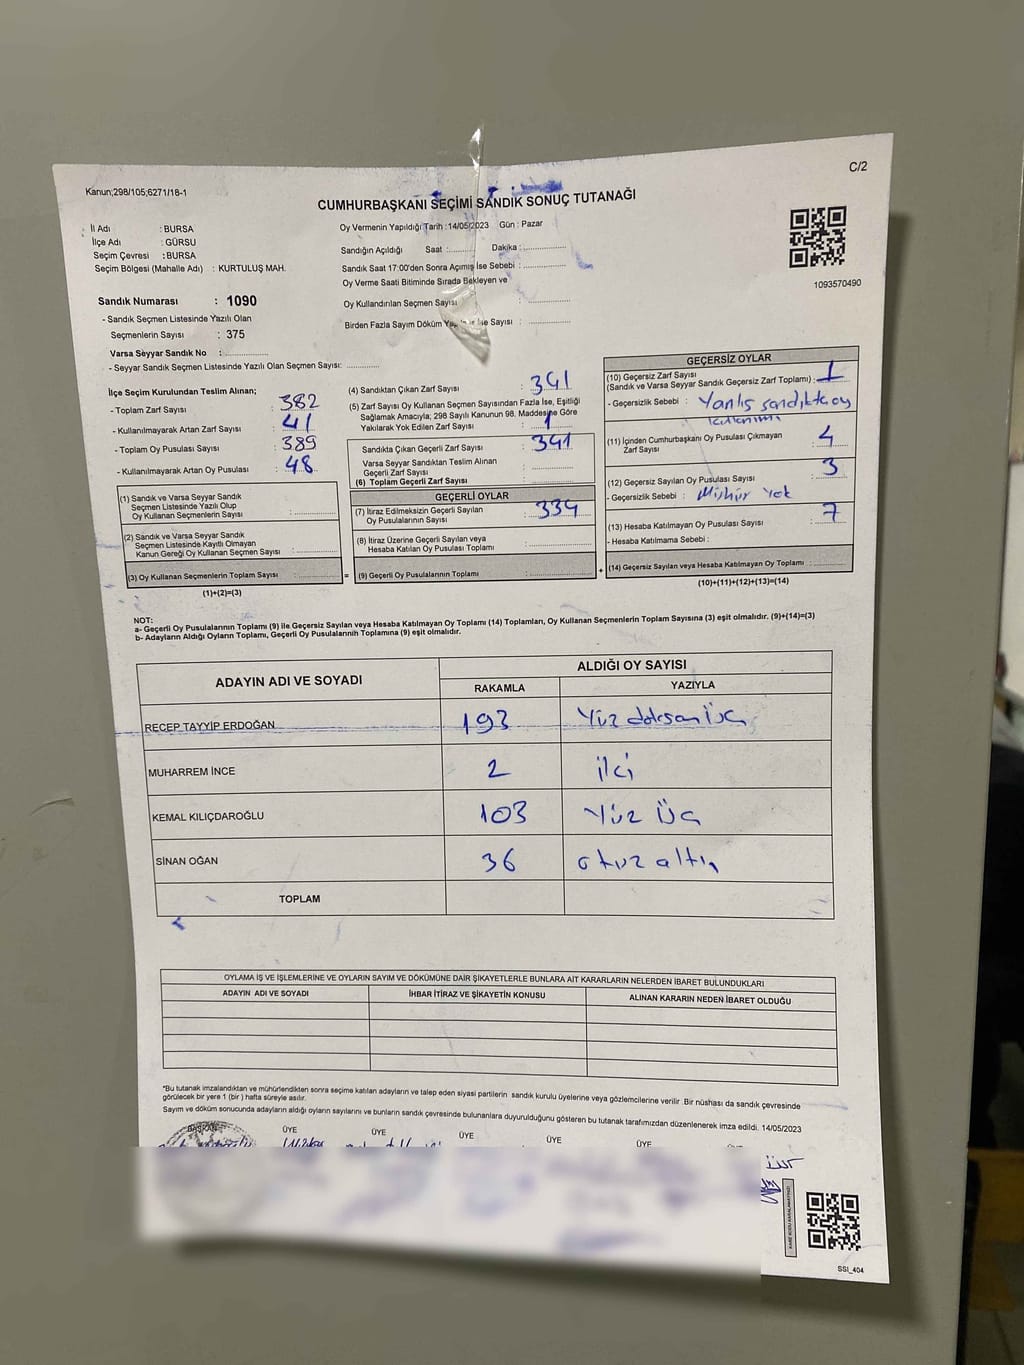 Kanun;298/105;6271/18-1
C/2
CUMHURBAŞKANI SEÇİMİ SANDIK SONUÇ TUTANAĞI
İl Adı : BURSA
İlçe Adı : GÜRSU
Seçim Çevresi : BURSA
Seçim Bölgesi (Mahalle Adı) : KURTULUŞ MAH.
Sandık Numarası : 1090
- Sandık Seçmen Listesinde Yazılı Olan
Seçmenlerin Sayısı : 375
Varsa Seyyar Sandık No :
- Seyyar Sandık Seçmen Listesinde Yazılı Olan Seçmen Sayısı:
Oy Vermenin Yapıldığı Tarih : 14/05/2023 Gün : Pazar
Sandığın Açıldığı Saat : Dakika :
Sandık Saat 17:00'den Sonra Açımış İse Sebebi :
Oy Verme Saati Bitiminde Sırada Bekleyen ve
Oy Kullandırılan Seçmen Sayısı :
Birden Fazla Sayım Döküm İse Sayısı :
1093570490
İlçe Seçim Kurulundan Teslim Alınan;
- Toplam Zarf Sayısı : 382
- Kullanılmayarak Artan Zarf Sayısı : 41
- Toplam Oy Pusulası Sayısı : 389
- Kullanılmayarak Artan Oy Pusulası : 48
(1) Sandık ve Varsa Seyyar Sandık
Seçmen Listesinde Yazılı Olup
Oy Kullanan Seçmenlerin Sayısı :
(2) Sandık ve Varsa Seyyar Sandık
Seçmen Listesinde Kayıtlı Olmayan
Kanun Gereği Oy Kullanan Seçmen Sayısı :
(3) Oy Kullanan Seçmenlerin Toplam Sayısı : =
(1)+(2)=(3)
(4) Sandıktan Çıkan Zarf Sayısı : 341
(5) Zarf Sayısı Oy Kullanan Seçmen Sayısından Fazla İse, Eşitliği
Sağlamak Amacıyla; 298 Sayılı Kanunun 98. Maddesine Göre
Yakılarak Yok Edilen Zarf Sayısı : 1
Sandıkta Çıkan Geçerli Zarf Sayısı : 341
Varsa Seyyar Sandıktan Teslim Alınan
Geçerli Zarf Sayısı :
(6) Toplam Geçerli Zarf Sayısı :
GEÇERLİ OYLAR
(7) İtiraz Edilmeksizin Geçerli Sayılan
Oy Pusulalarının Sayısı : 334
(8) İtiraz Üzerine Geçerli Sayılan veya
Hesaba Katılan Oy Pusulası Toplamı :
(9) Geçerli Oy Pusulalarının Toplamı : +
GEÇERSİZ OYLAR
(10) Geçersiz Zarf Sayısı
(Sandık ve Varsa Seyyar Sandık Geçersiz Zarf Toplamı) : 1
- Geçersizlik Sebebi : Yanlış sandıkta oy
kullanımı
(11) İçinden Cumhurbaşkanı Oy Pusulası Çıkmayan
Zarf Sayısı : 4
(12) Geçersiz Sayılan Oy Pusulası Sayısı : 3
- Geçersizlik Sebebi : Mühür Yok
(13) Hesaba Katılmayan Oy Pusulası Sayısı : 7
- Hesaba Katılmama Sebebi :
(14) Geçersiz Sayılan veya Hesaba Katılmayan Oy Toplamı :
(10)+(11)+(12)+(13)=(14)
NOT:
a- Geçerli Oy Pusulalarının Toplamı (9) ile Geçersiz Sayılan veya Hesaba Katılmayan Oy Toplamı (14) Toplamları, Oy Kullanan Seçmenlerin Toplam Sayısına (3) eşit olmalıdır. (9)+(14)=(3)
b- Adayların Aldığı Oyların Toplamı, Geçerli Oy Pusulalarının Toplamına (9) eşit olmalıdır.
ADAYIN ADI VE SOYADI
ALDIĞI OY SAYISI
RAKAMLA YAZIYLA
RECEP TAYYİP ERDOĞAN 193 Yüz doksan üç
MUHARREM İNCE 2 iki
KEMAL KILIÇDAROĞLU 103 Yüz Üç
SİNAN OĞAN 36 otuz altı
TOPLAM
OYLAMA İŞ VE İŞLEMLERİNE VE OYLARIN SAYIM VE DÖKÜMÜNE DAİR ŞİKAYETLERLE BUNLARA AİT KARARLARIN NELERDEN İBARET BULUNDUKLARI
ADAYIN ADI VE SOYADI İHBAR İTİRAZ VE ŞİKAYETİN KONUSU ALINAN KARARIN NEDEN İBARET OLDUĞU
*Bu tutanak imzalandıktan ve mühürlendikten sonra seçime katılan adayların ve talep eden siyasi partilerin sandık kurulu üyelerine veya gözlemcilerine verilir .Bir nüshası da sandık çevresinde
görülecek bir yere 1 (bir ) hafta süreyle asılır.
Sayım ve döküm sonucunda adayların aldığı oyların sayılarını ve bunların sandık çevresinde bulunanlara duyurulduğunu gösteren bu tutanak tarafımızdan düzenlenerek imza edildi. 14/05/2023
BAŞKAN ÜYE ÜYE ÜYE ÜYE ÜYE
SSI_404